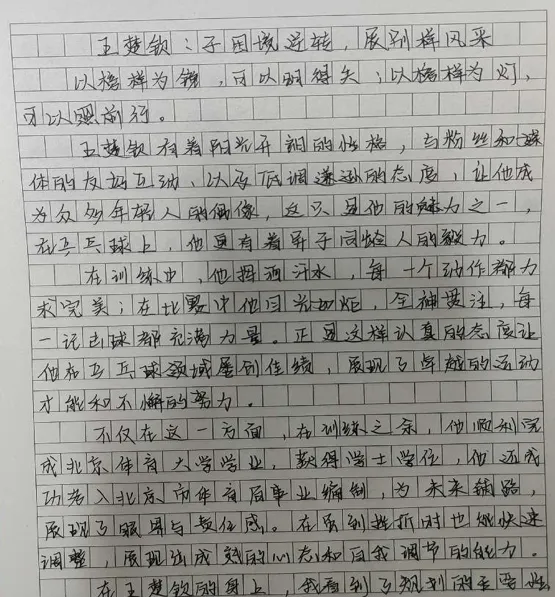 王楚钦：于困境逆转，展别样风采
以榜样为镜，可以明得失；以榜样为灯，
可以照前行。
王楚钦有着阳光开朗的性格，与粉丝和媒
体的友好互动，以及低调谦逊的态度，让他成
为众多年轻人的偶像，这只是他的魅力之一，
在乒乓球上，他更有着异于同龄人的毅力。
在训练中，他挥洒汗水，每一个动作都力
求完美；在比赛中他目光如炬，全神贯注，每
一记击球都充满力量。正是这样认真的态度让
他在乒乓球领域屡创佳绩，展现了卓越的运动
才能和不懈的努力。
不仅在这一方面，在训练之余，他顺利完
成北京体育大学学业，获得学士学位，他还成
功考入北京市体育局事业编制，为未来铺路，
展现了眼界与责任感。在遇到挫折时也能快速
调整，展现出成熟的心态和自我调节的能力。
在王楚钦的身上，我看到了规划的重要性